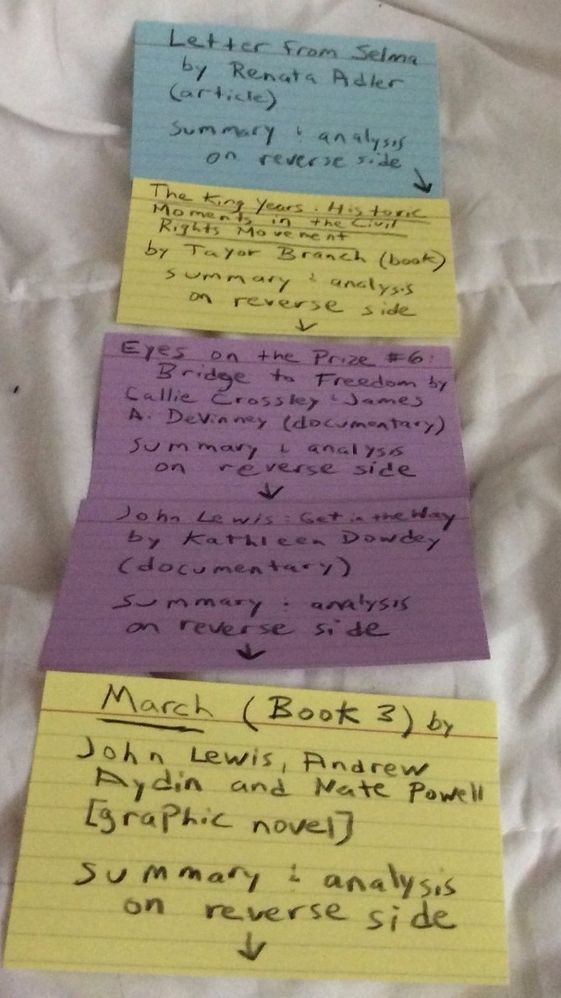 Letter from Selma
by Renata Adler
(article)
Summary & analysis
on reverse side
The King Years: Historic
Moments in the Civil
Rights Movement
by Tayor Branch (book)
summary & analysis
on reverse side
Eyes on the Prize #6:
Bridge to Freedom by
Callie Crossley & James
A. DeVinney (documentary)
Summary & analysis
on reverse side
John Lewis: Get in the Way
by Kathleen Dowdey
(documentary)
Summary & analysis
on reverse side
March (Book 3) by
John Lewis, Andrew
Aydin and Nate Powell
[graphic novel]
Summary & analysis
on reverse side